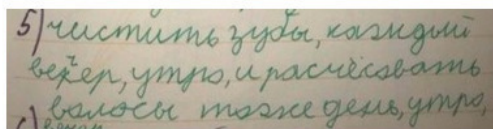 5) чистить зубы, каждый
вечер, утро, и расчёсовать
волосы тоже день, утро,